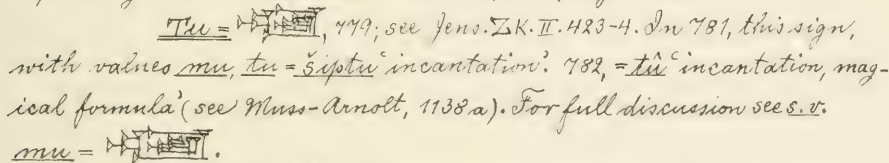 Tu = 𒅲, 779; see Jens. ZK. II. 423-4. In 781, this sign,
with values mu, tu = šiptu 'incantation'. 782, = tû 'incantation, mag-
ical formula' (see Muss-Arnolt, 1138a). For full discussion see s.v.
mu = 𒅲.